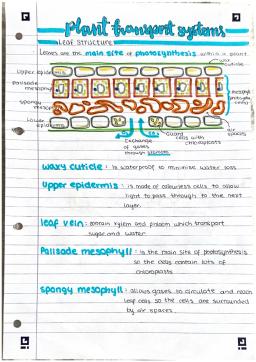 plant transport systems
Leaf Structure
Leaves are the main site of photosynthesis within a plant.
waxy cuticle
Upper epidermis
Palisade
mesophyll
spongy
mesophyll
Lower
epidermis
Guard
cells with
chloroplasts
air
spaces
Exchange
of gases
through stomata
waxy cuticle: is waterproof to minimise water loss
Upper epidermis: is made of colourless cells to allow
light to pass through to the next
layer.
leaf vein: contain xylem and phloem which transport
sugar and water
Palisade mesophyll: is the main site of photosynthesis
so the cells contain lots of
chloroplasts
spongy mesophyll: allows gases to circulate and reach
leaf cells so the cells are surrounded
by air spaces